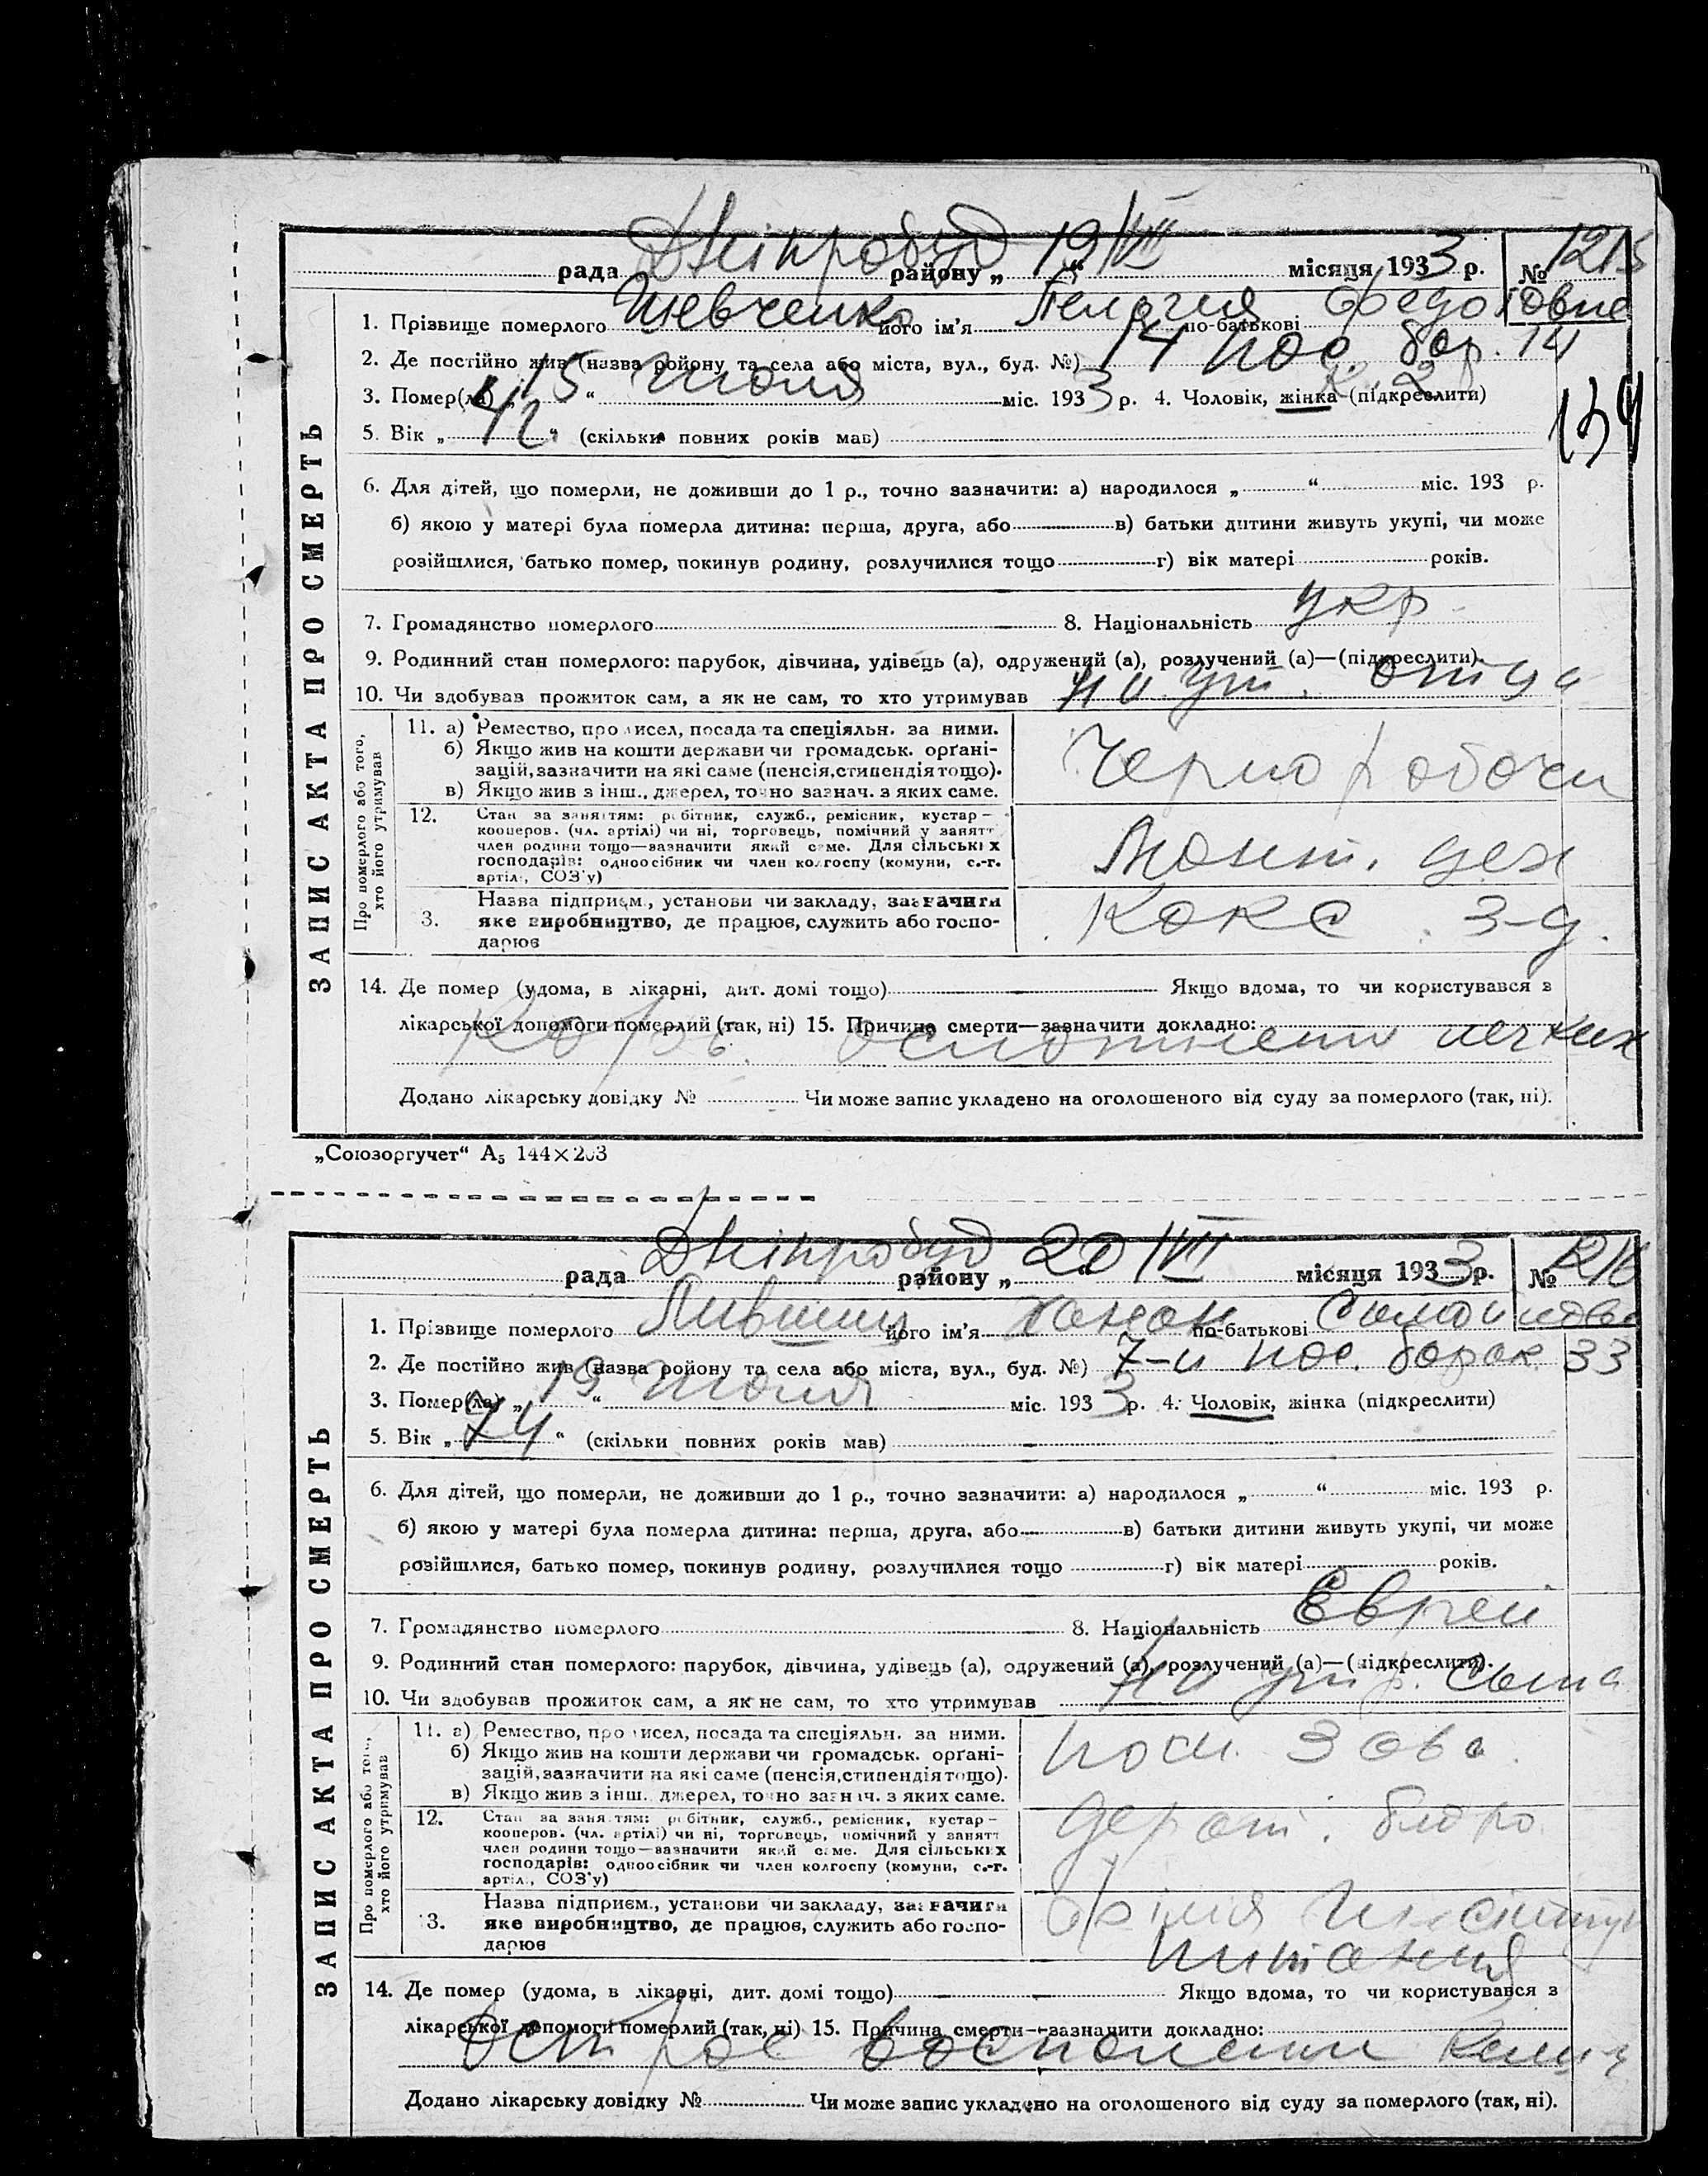 Дніпробуд 19/VII
рада районy „ “ місяця 1933 р. № 1215
1. Прізвище померлого Шевченко його ім'я Пелагия по-батькові Федотовна
2. Де постійно жив (назва ройону та села або міста, вул., буд. №) 14 пос. бар. 14
3. Помер(ла) „ 15 “ июля міс. 1933 р. 4. Чоловік, жінка (підкреслити)
5. Вік „ “ (скільки повних років мав)
6. Для дітей, що померли, не доживши до 1 р., точно зазначити: а) народилося „ “ міс. 193 р.
б) якою у матері була померла дитина: перша, друга, або в) батьки дитини живуть укупі, чи може
розійшлися, батько помер, покинув родину, розлучилися тощо г) вік матері років.
7. Громадянство померлого 8. Національність укр.
9. Родинний стан померлого: парубок, дівчина, удівець (а), одружений (а), розлучений (а)—(підкреслити).
10. Чи здобував прожиток сам, а як не сам, то хто утримував на иж. отца
ЗАПИС АКТА ПРО СМЕРТЬ
Про померлого або того, хто його утримував
11. а) Ремество, промисел, посада та спеціяльн. за ними.
б) Якщо жив на кошти держави чи громадськ. орґані-
зацій, зазначити на які саме (пенсія, стипендія тощо).
в) Якщо жив з інш. джерел, точно зазнач. з яких саме.
Чернорабочи
12. Стан за заняттям: робітник, служб., ремісник, кустар—
кооперов. (чл. артілі) чи ні, торговець, помічний у занятт
член родини тощо—зазначити який саме. Для сільських
господарів: одноосібник чи член колгоспу (комуни, с.-г.
артіл., СОЗ'у)
Монт. цех
3. Назва підприєм., установи чи закладу, зазначити
яке виробництво, де працює, служить або госпо-
дарює
Кокс. з-д.
14. Де помер (удома, в лікарні, дит. домі тощо) Якщо вдома, то чи користувався з
лікарської допомоги померлий (так, ні) 15. Причина смерти—зазначити докладно:
Корь.
Додано лікарську довідку № Чи може запис укладено на оголошеного від суду за померлого (так, ні).
„Союзоргучет“ А5 144×203
Дніпробуд 20/VII
рада районy „ “ місяця 1933 р. № 1216
1. Прізвище померлого Лившиц його ім'я Ханан по-батькові
2. Де постійно жив (назва ройону та села або міста, вул., буд. №) 7-й пос. барак 33
3. Помер(ла) „ 19 “ июля міс. 1933 р. 4. Чоловік, жінка (підкреслити)
5. Вік „ 74 “ (скільки повних років мав)
6. Для дітей, що померли, не доживши до 1 р., точно зазначити: а) народилося „ “ міс. 193 р.
б) якою у матері була померла дитина: перша, друга, або в) батьки дитини живуть укупі, чи може
розійшлися, батько помер, покинув родину, розлучилися тощо г) вік матері років.
7. Громадянство померлого 8. Національність Еврей
9. Родинний стан померлого: парубок, дівчина, удівець (а), одружений (а), розлучений (а)—(підкреслити).
10. Чи здобував прожиток сам, а як не сам, то хто утримував на иж. сына
ЗАПИС АКТА ПРО СМЕРТЬ
Про померлого або того, хто його утримував
11. а) Ремество, промисел, посада та спеціяльн. за ними.
б) Якщо жив на кошти держави чи громадськ. орґані-
зацій, зазначити на які саме (пенсія, стипендія тощо).
в) Якщо жив з інш. джерел, точно зазнач. з яких саме.
12. Стан за заняттям: робітник, служб., ремісник, кустар—
кооперов. (чл. артілі) чи ні, торговець, помічний у занятт
член родини тощо—зазначити який саме. Для сільських
господарів: одноосібник чи член колгоспу (комуни, с.-г.
артіл., СОЗ'у)
бюро
3. Назва підприєм., установи чи закладу, зазначити
яке виробництво, де працює, служить або госпо-
дарює
питания
14. Де помер (удома, в лікарні, дит. домі тощо) Якщо вдома, то чи користувався з
лікарської допомоги померлий (так, ні) 15. Причина смерти—зазначити докладно:
Острое воспалени
Додано лікарську довідку № Чи може запис укладено на оголошеного від суду за померлого (так, ні).